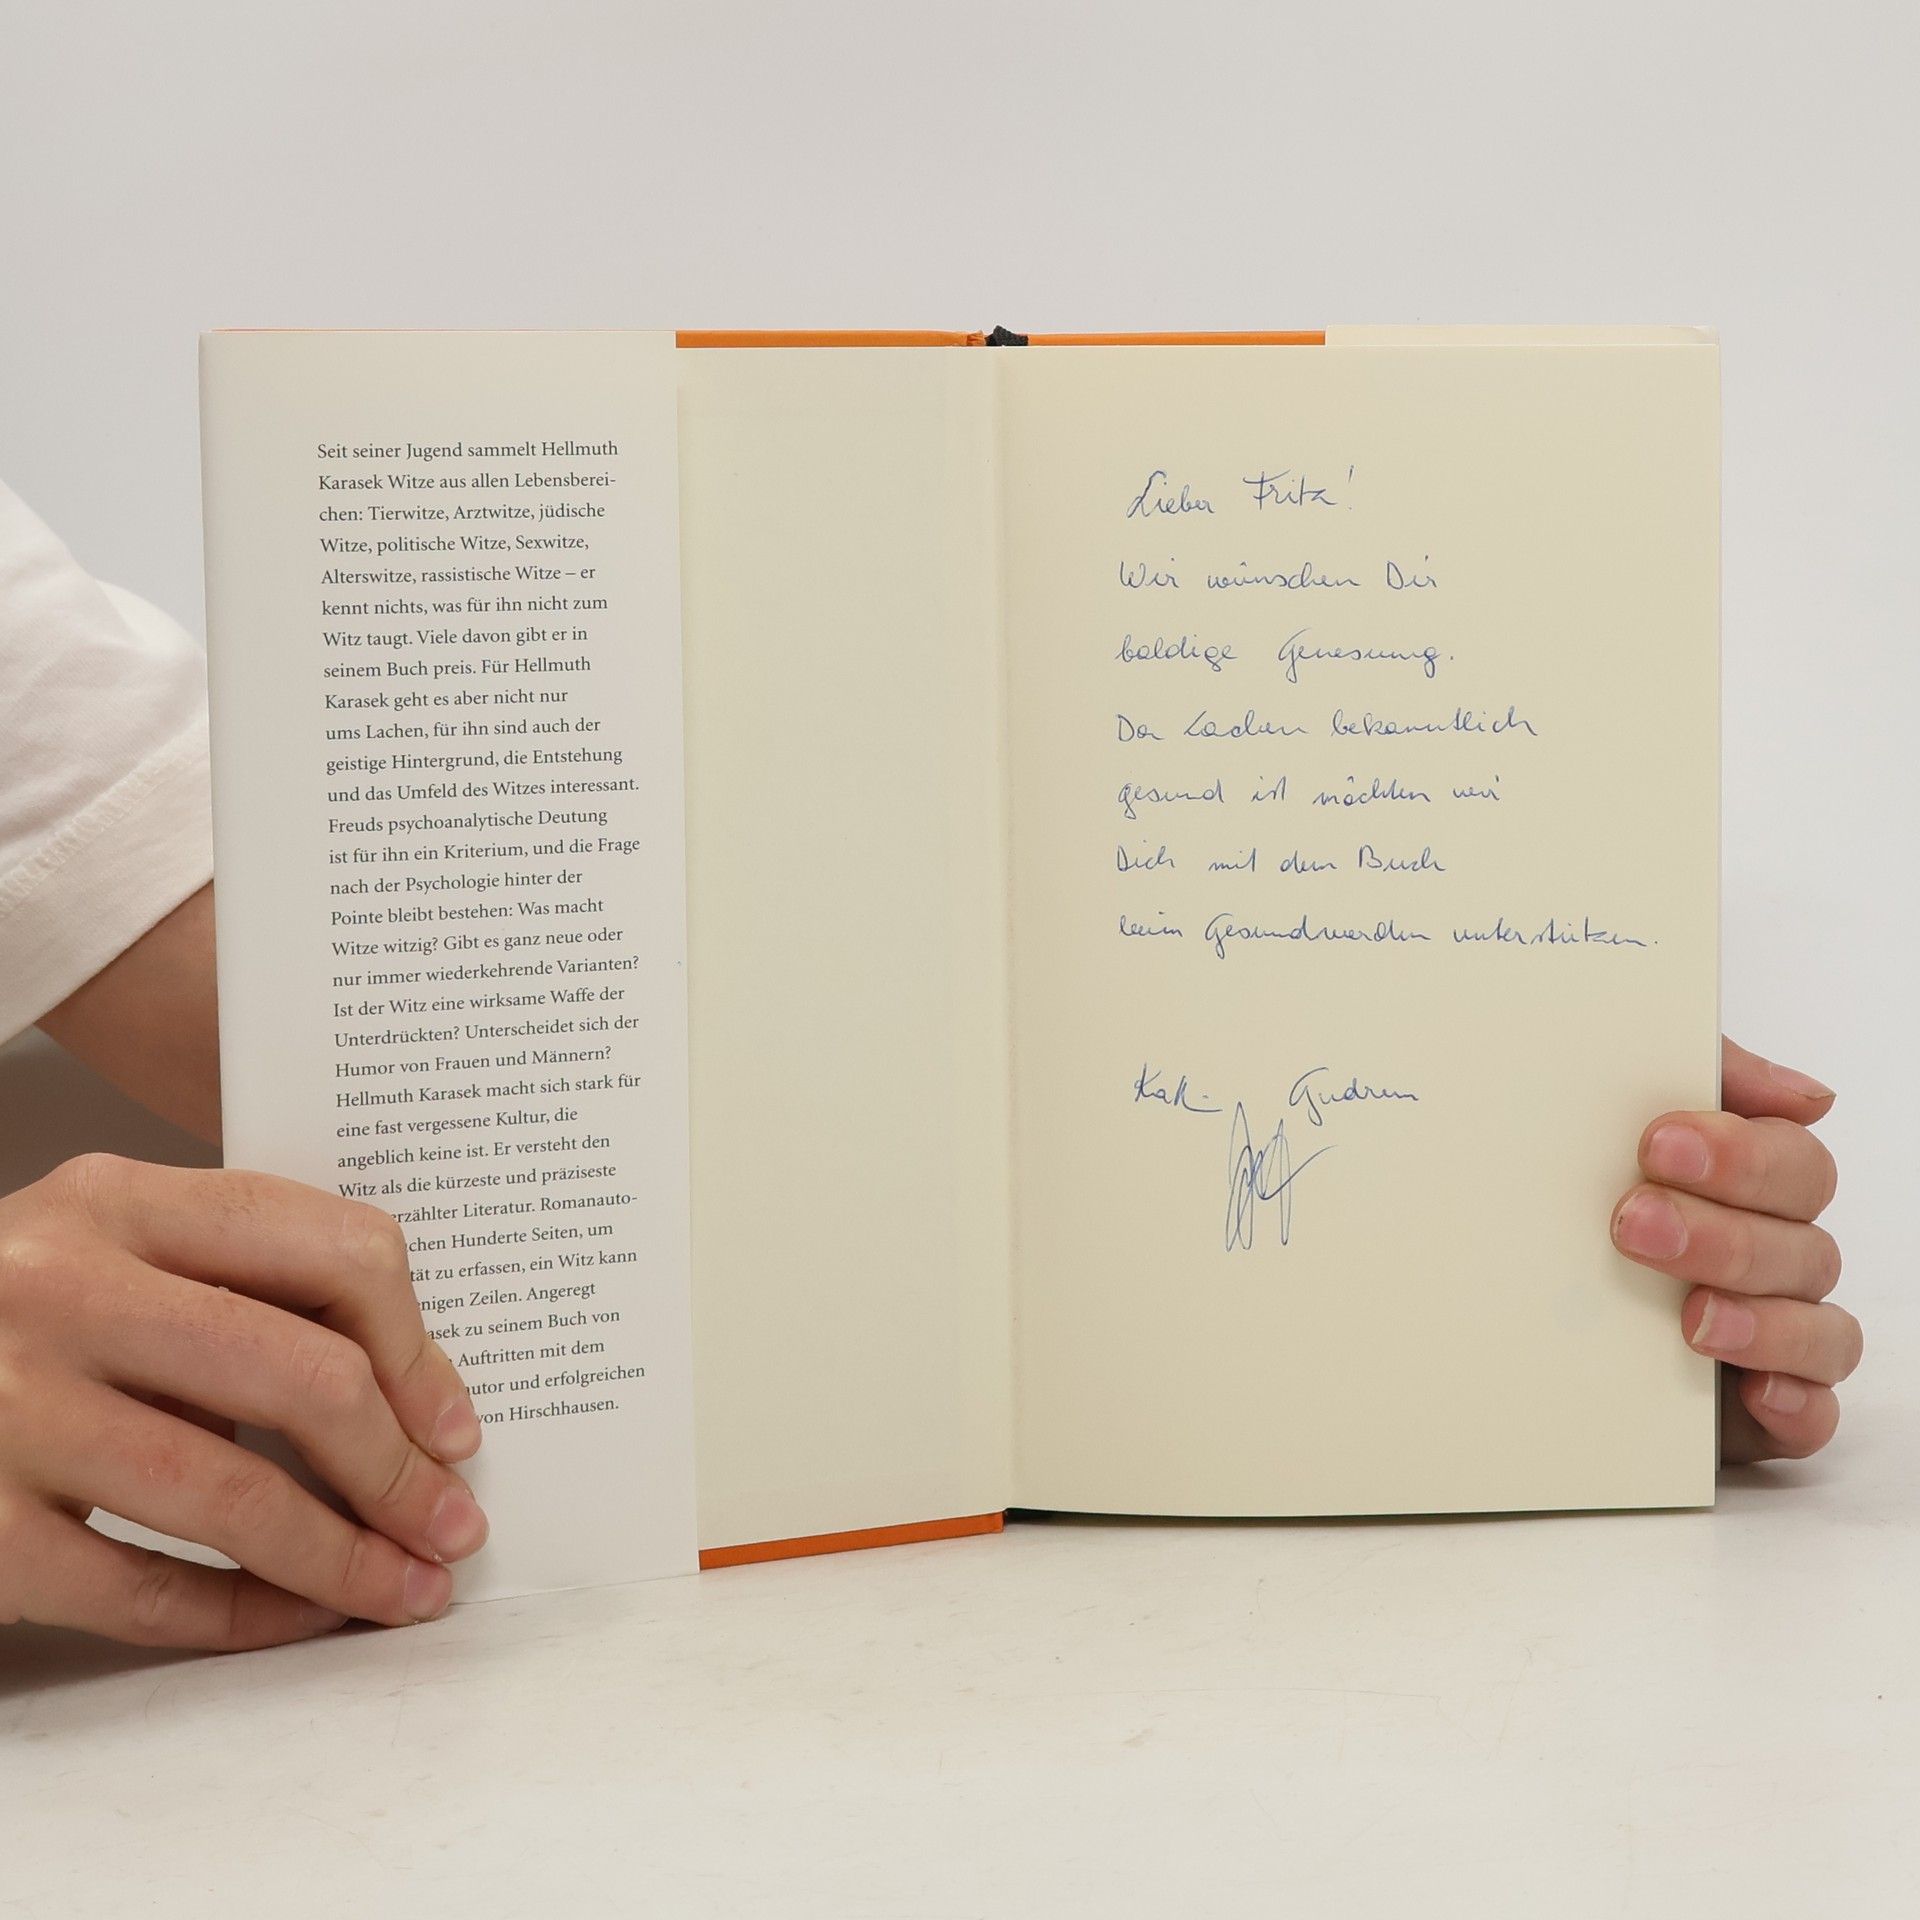 Seit seiner Jugend sammelt Hellmuth
Karasek Witze aus allen Lebensberei-
chen: Tierwitze, Arztwitze, jüdische
Witze, politische Witze, Sexwitze,
Alterswitze, rassistische Witze – er
kennt nichts, was für ihn nicht zum
Witz taugt. Viele davon gibt er in
seinem Buch preis. Für Hellmuth
Karasek geht es aber nicht nur
ums Lachen, für ihn sind auch der
geistige Hintergrund, die Entstehung
und das Umfeld des Witzes interessant.
Freuds psychoanalytische Deutung
ist für ihn ein Kriterium, und die Frage
nach der Psychologie hinter der
Pointe bleibt bestehen: Was macht
Witze witzig? Gibt es ganz neue oder
nur immer wiederkehrende Varianten?
Ist der Witz eine wirksame Waffe der
Unterdrückten? Unterscheidet sich der
Humor von Frauen und Männern?
Hellmuth Karasek macht sich stark für
eine fast vergessene Kultur, die
angeblich keine ist. Er versteht den
Witz als die kürzeste und präziseste
erzählter Literatur. Romanauto-
chen Hunderte Seiten, um
tät zu erfassen, ein Witz kann
nigen Zeilen. Angeregt
asek zu seinem Buch von
Auftritten mit dem
autor und erfolgreichen
von Hirschhausen.
Lieber Fritz!
Wir wünschen Dir
baldige Genesung.
Da Lachen bekanntlich
gesund ist möchten wir
Dich mit dem Buch
beim Gesundwerden unterstützen.
Gudrun